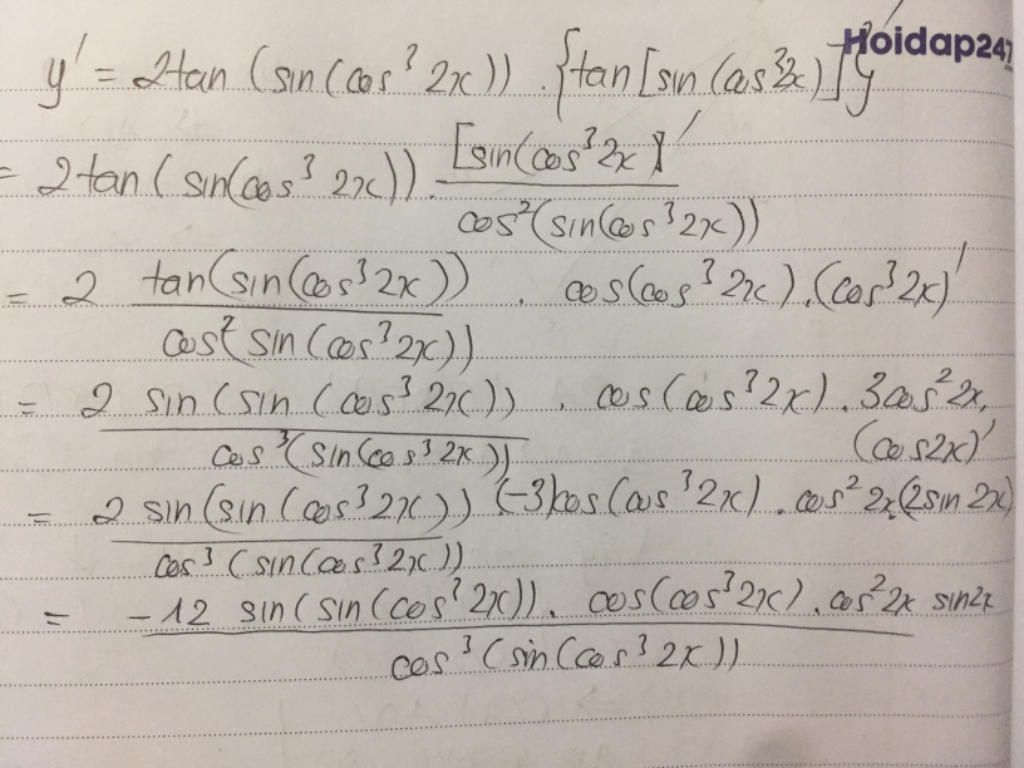 Hoidap247
y' = 2tan (sin(cos³ 2x)) . {tan [sin (cos³2x)]}'
= 2tan ( sin(cos³ 2x)) . [sin(cos³ 2x)]' / cos²(sin(cos³2x))
= 2 tan(sin(cos³2x)) / cos² sin (cos³2x)) . cos(cos³ 2x) . (cos³ 2x)'
= 2 sin (sin (cos³ 2x)) / cos³ (sin(cos³ 2x)) . cos (cos³ 2x) . 3cos² 2x.
(cos2x)'
= 2 sin(sin (cos³2x)) / cos³ (sin(cos³2x)) (-3)cos (cos³2x) . cos² 2x.(2sin 2x)
= -12 sin (sin (cos³ 2x)) . cos(cos³ 2x) . cos² 2x sin2x / cos³ (sin(cos³ 2x))